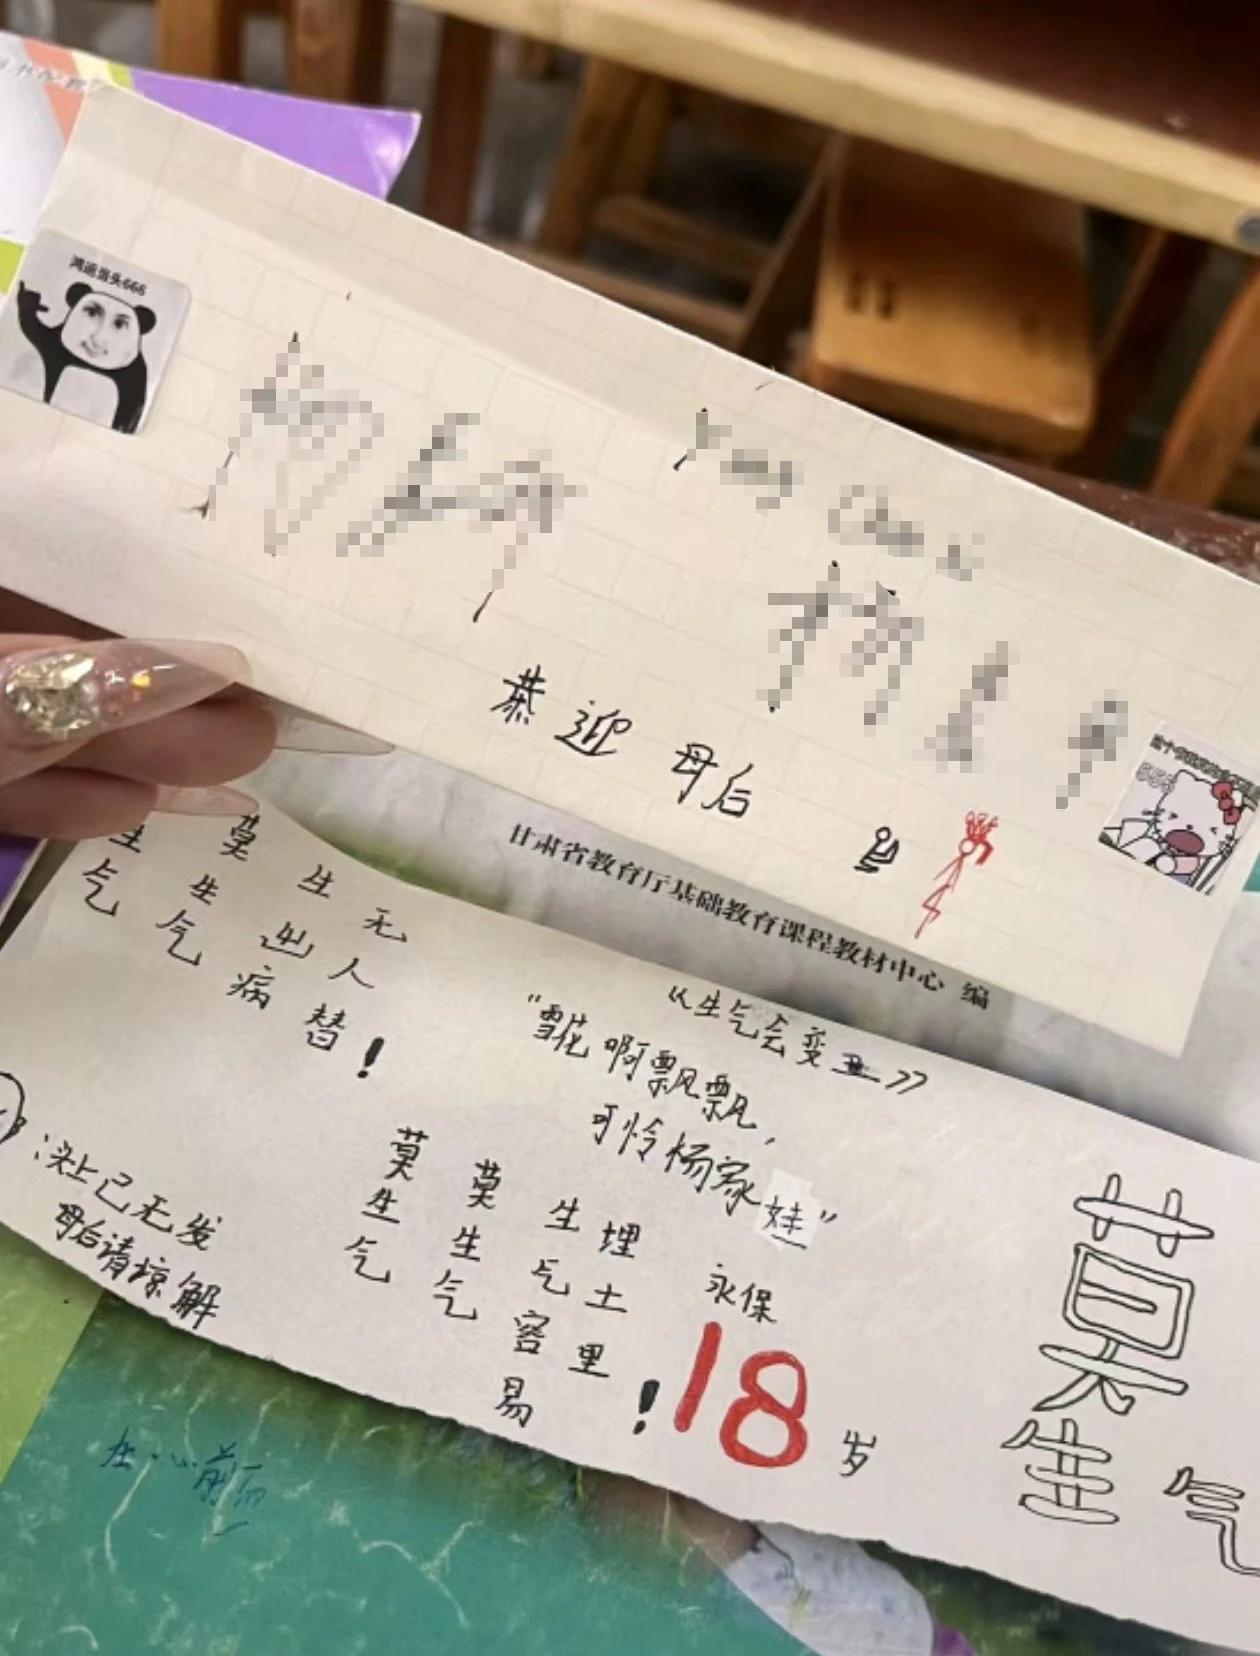 鸿运当头666
恭迎 母后
甘肃省教育厅基础教育课程教材中心 编
《生气会变丑》
"雪花啊飘飘,
可怜杨家娃"
莫生气
莫生气
生出病
无人替!
头上已无发
母后请惊解
莫生气
莫生气
生气容易
埋土里!
永保
18岁
莫生气